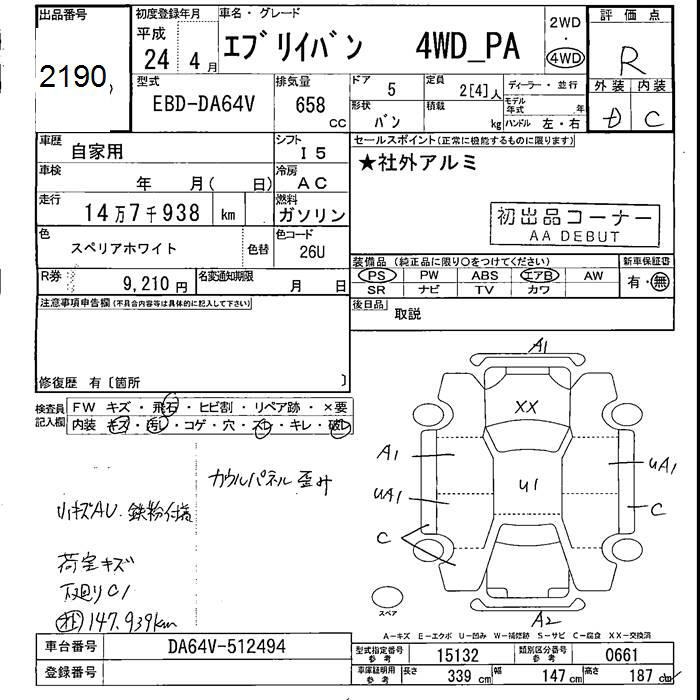 出品番号
2190,
初度登録年月
平成
24年4月
車名・グレード
エブリイバン 4WD_PA
2WD
・
4WD
評価点
R
外装 内装
D C
型式
EBD-DA64V
排気量
658
CC
ドア
5
定員
2[4]人
ディーラー・並行
形状
バン
積載
kg
モデル年式 年
ハンドル 左・右
車歴
自家用
シフト
I5
車検
年 月( 日)
冷房
AC
走行
14万7千938 km
燃料
ガソリン
色
スペリアホワイト
色替
色コード
26U
R券
9,210円
名変通知期限
月 日
セールスポイント(正常に機能するものに限ります)
★社外アルミ
初出品コーナー
AA DEBUT
装備品 (純正品に限り○をつけてください)
新車保証書
PS PW ABS エアB AW
有・無
SR ナビ TV カワ
後日品
取説
注意事項申告欄(不具合内容等は具体的に記入して下さい)
修復歴 有〔箇所 〕
検査員記入欄
FW キズ・飛石・ヒビ割・リペア跡・×要
内装 キズ・汚レ・コゲ・穴・スレ・キレ・破レ
カウルパネル 歪み
小キズAU 鉄粉付着
荷室キズ
下廻りC1
147,939km
A1
XX
A1
U1
UA1
UA1
C
C
A2
スペア
A-キズ E-エクボ U-凹み W-補修跡 S-サビ C-腐食 XX-交換済
車台番号
DA64V-512494
登録番号
型式指定番号
参考
15132
類別区分番号
参考
0661
車庫証明用
参考
長さ
339 cm
幅
147 cm
高さ
187 cm